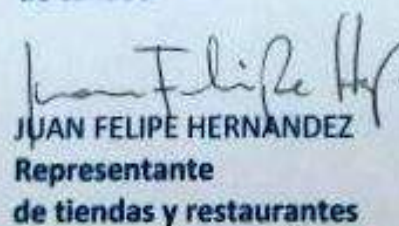 Juan Felipe H
JUAN FELIPE HERNANDEZ
Representante
de tiendas y restaurantes